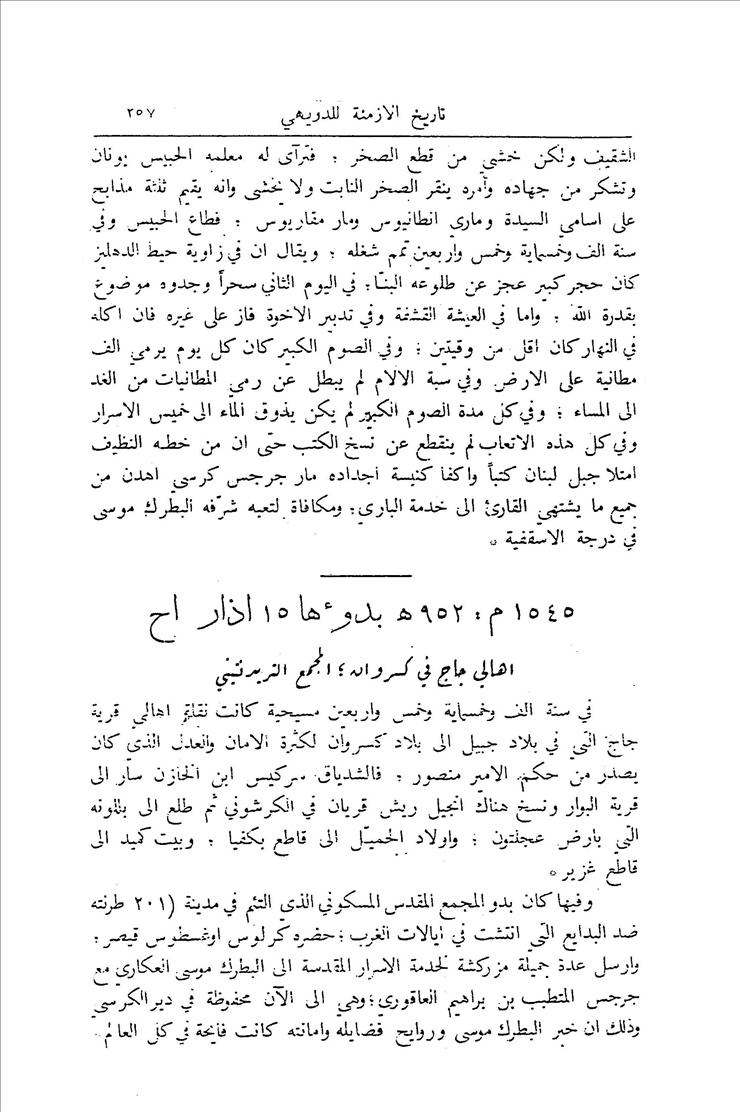 تاريخ الازمنة للدويهي ٢٥٧
الشقيف ولكن خشي من قطع الصخر ؛ فترآى له معلمه الحبيس يونان
وتشكر من جهاده وأمره ينقر الصخر النابت ولا يخشى وانه يقيم ثلثة مذابح
على اسامي السيدة وماري انطانيوس ومار مقاريوس ؛ فطاع الحبيس وفي
سنة الف وخمسماية وخمس واربعين تمم شغله ؛ ويقال ان في زاوية حيط الدهليز
كان حجر كبير عجز عن طلوعه البنا؛ في اليوم الثاني سحراً وجدوه موضوع
بقدرة الله ؛ واما في العيشة القشفة وفي تدبير الاخوة فاز على غيره فان اكله
في النهار كان اقل من وقيتين ؛ وفي الصوم الكبير كان كل يوم يرمي الف
مطانية على الارض وفي سبة الالام لم يبطل عن رمي المطانيات من الغد
الى المساء ؛ وفي كل مدة الصوم الكبير لم يكن يذوق الماء الى خميس الاسرار
وفي كل هذه الاتعاب لم ينقطع عن نسخ الكتب حتى ان من خطه النظيف
امتلا جبل لبنان كتباً واكفا كنيسة اجداده مار جرجس كرسي اهدن من
جميع ما يشتهي القارئ الى خدمة الباري؛ ومكافاة لتعبه شرّفه البطرك موسى
في درجة الاسقفية *
١٥٤٥ م؛ ٩٥٢ هـ بدوءها ١٥ اذار اح
اهالي جاج في كسروان ؛ المجمع التريدنتيني
في سنة الف وخمسماية وخمس واربعين مسيحية كانت نقلة اهالي قرية
جاج التي في بلاد جبيل الى بلاد كسروان لكثرة الامان والعدل الذي كان
يصدر من حكم الامير منصور ؛ فالشدياق سركيس ابن الخازن سار الى
قرية البوار ونسخ هناك انجيل ريش قريان في الكرشوني ثم طلع الى بلونه
التي بارض عجلتون ؛ واولاد الجميّل الى قاطع بكفيا ؛ وبيت كميد الى
قاطع غزير *
وفيها كان بدو المجمع المقدس المسكوني الذي التئم في مدينة (٢٠١ طرنته
ضد البدايع التي انتشت في ايالات الغرب ؛ حضره كرلوس اوغسطوس قيصر ؛
وارسل عدة جميلة مزركشة لخدمة الاسرار المقدسة الى البطرك موسى العكاري مع
جرجس المتطبب بن براهيم العاقوري؛ وهي الى الآن محفوظة في دير الكرسي
وذلك ان خبر البطرك موسى وروايح فضايله وامانته كانت فايحة في كل العالم .